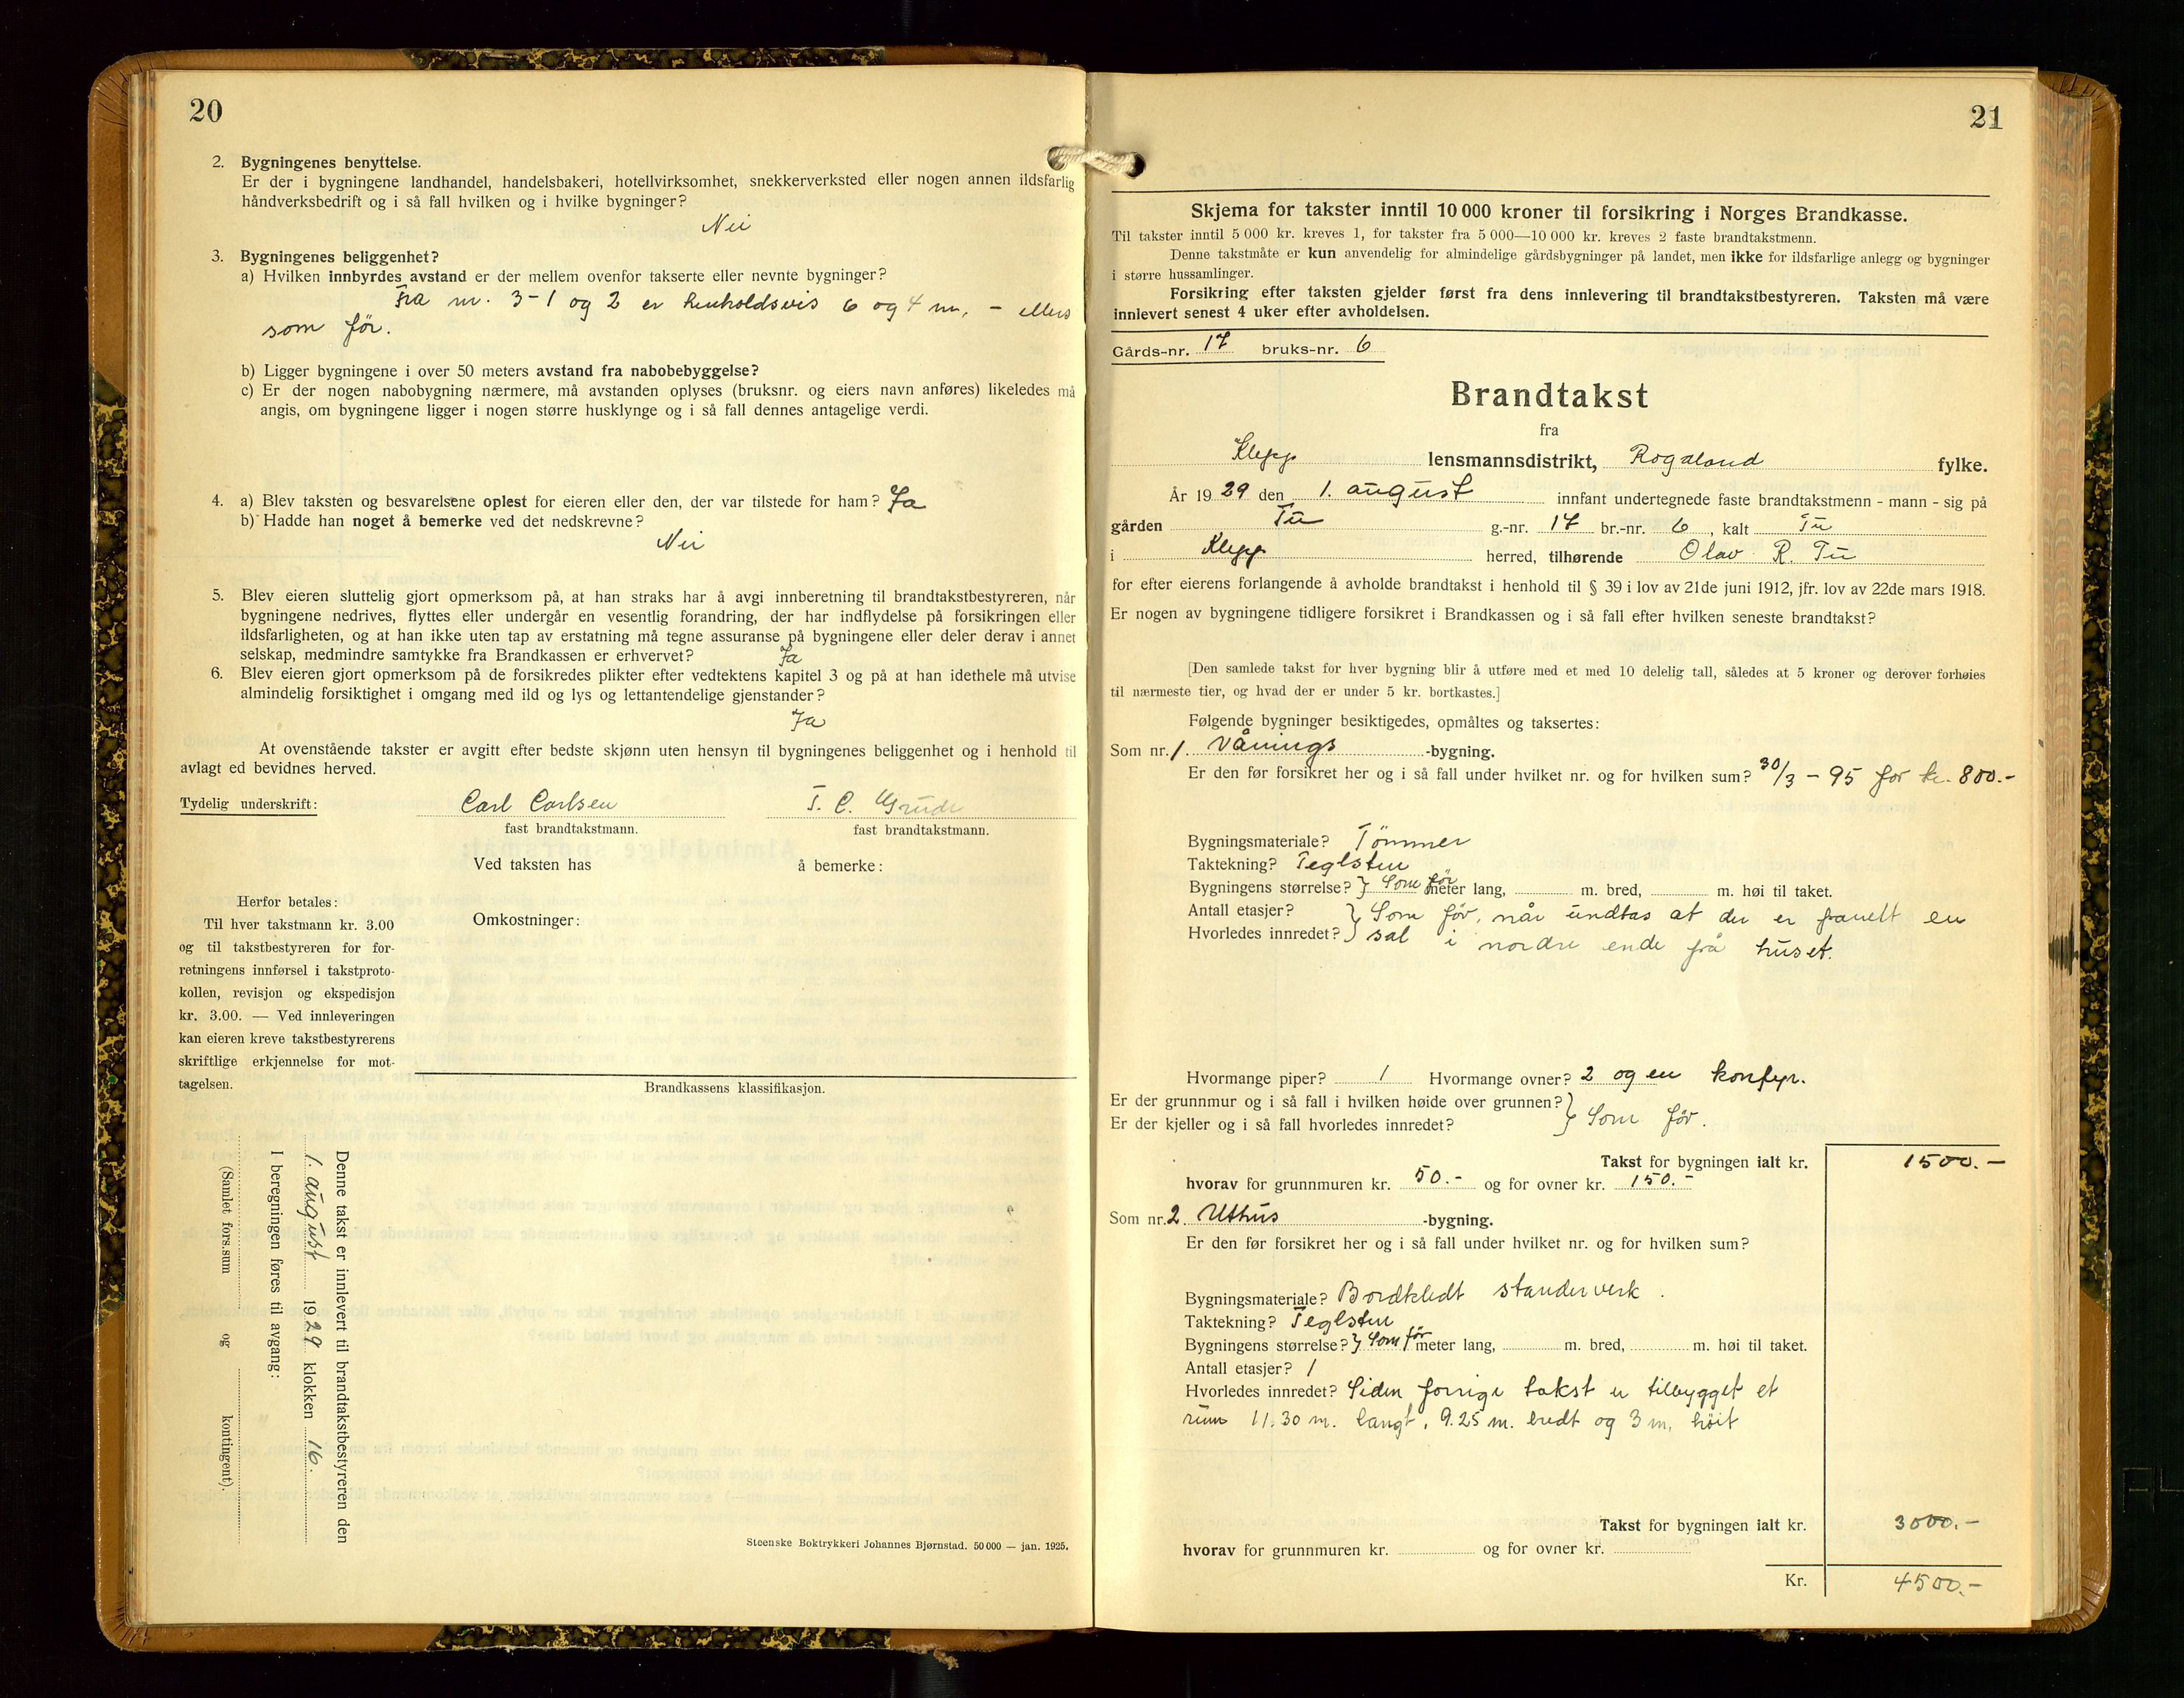 20
2. Bygningenes benyttelse.
Er der i bygningene landhandel, handelsbakeri, hotellvirksomhet, snekkerverksted eller nogen annen ildsfarlig
håndverksbedrift og i så fall hvilken og i hvilke bygninger?
Nei
3. Bygningenes beliggenhet?
a) Hvilken innbyrdes avstand er der mellem ovenfor takserte eller nevnte bygninger?
Fra nr. 3-1 og 2 er henholdsvis 6 og 4 m, - ellers
som før.
b) Ligger bygningene i over 50 meters avstand fra nabobebyggelse?
c) Er der nogen nabobygning nærmere, må avstanden oplyses (bruksnr. og eiers navn anføres) likeledes må
angis, om bygningene ligger i nogen større husklynge og i så fall dennes antagelige verdi.
4. a) Blev taksten og besvarelsene oplest for eieren eller den, der var tilstede for ham? Ja
b) Hadde han noget å bemerke ved det nedskrevne?
Nei
5. Blev eieren sluttelig gjort opmerksom på, at han straks har å avgi innberetning til brandtakstbestyreren, når
bygningene nedrives, flyttes eller undergår en vesentlig forandring, der har indflydelse på forsikringen eller
ildsfarligheten, og at han ikke uten tap av erstatning må tegne assuranse på bygningene eller deler derav i annet
selskap, medmindre samtykke fra Brandkassen er erhvervet? Ja
6. Blev eieren gjort opmerksom på de forsikredes plikter efter vedtektens kapitel 3 og på at han idethele må utvise
almindelig forsiktighet i omgang med ild og lys og lettantendelige gjenstander?
Ja
At ovenstående takster er avgitt efter bedste skjønn uten hensyn til bygningenes beliggenhet og i henhold til
avlagt ed bevidnes herved.
Tydelig underskrift: Carl Carlsen T. C. Grude
fast brandtakstmann. fast brandtakstmann.
Ved taksten has å bemerke:
Herfor betales:
Til hver takstmann kr. 3.00
og til takstbestyreren for for-
retningens innførsel i takstproto-
kollen, revisjon og ekspedisjon
kr. 3.00. — Ved innleveringen
kan eieren kreve takstbestyrerens
skriftlige erkjennelse for mot-
tagelsen.
Omkostninger:
Brandkassens klassifikasjon.
Denne takst er innlevert til brandtakstbestyreren den
1. august 1929 klokken 16.
I beregningen føres til avgang:
(Samlet fors.sum og kontingent).
Steenske Boktrykkeri Johannes Bjørnstad. 50 000 — jan. 1925.
21
Skjema for takster inntil 10 000 kroner til forsikring i Norges Brandkasse.
Til takster inntil 5 000 kr. kreves 1, for takster fra 5 000—10 000 kr. kreves 2 faste brandtakstmenn.
Denne takstmåte er kun anvendelig for almindelige gårdsbygninger på landet, men ikke for ildsfarlige anlegg og bygninger
i større hussamlinger.
Forsikring efter taksten gjelder først fra dens innlevering til brandtakstbestyreren. Taksten må være
innlevert senest 4 uker efter avholdelsen.
Gårds-nr. 17 bruks-nr. 6
Brandtakst
fra
Klepp lensmannsdistrikt, Rogaland fylke.
År 1929 den 1. august innfant undertegnede faste brandtakstmenn - mann - sig på
gården Tu g.-nr. 17 br.-nr. 6, kalt Tu
i Klepp herred, tilhørende Olav R. Tu
for efter eierens forlangende å avholde brandtakst i henhold til § 39 i lov av 21de juni 1912, jfr. lov av 22de mars 1918.
Er nogen av bygningene tidligere forsikret i Brandkassen og i så fall efter hvilken seneste brandtakst?
[Den samlede takst for hver bygning blir å utføre med et med 10 delelig tall, således at 5 kroner og derover forhøies
til nærmeste tier, og hvad der er under 5 kr. bortkastes.]
Følgende bygninger besiktigedes, opmåltes og taksertes:
Som nr. 1. Vånings -bygning.
Er den før forsikret her og i så fall under hvilket nr. og for hvilken sum? 30/3 - 95 for kr. 800.-
Bygningsmateriale? Tömmer
Taktekning? Teglsten
Bygningens størrelse? } Som før meter lang, m. bred, m. høi til taket.
Antall etasjer? } Som før, når undtas at der er panelt en
Hvorledes innredet? } sal i nordre ende på huset.
Hvormange piper? 1 Hvormange ovner? 2 og en komfyr.
Er der grunnmur og i så fall i hvilken høide over grunnen? }
Er der kjeller og i så fall hvorledes innredet? } Som før.
Takst for bygningen ialt kr. 1500.-
hvorav for grunnmuren kr. 50.- og for ovner kr. 150.-
Som nr. 2 Uthus -bygning.
Er den før forsikret her og i så fall under hvilket nr. og for hvilken sum?
Bygningsmateriale? Bordkledt standerverk.
Taktekning? Teglsten
Bygningens størrelse? } Som før meter lang, m. bred, m. høi til taket.
Antall etasjer? 1
Hvorledes innredet? Siden forrige takst er tilbygget et
rum 11.30 m. langt, 9.25 m. bredt og 3 m. høit
Takst for bygningen ialt kr. 3000.-
hvorav for grunnmuren kr. og for ovner kr.
Kr. 4500.-